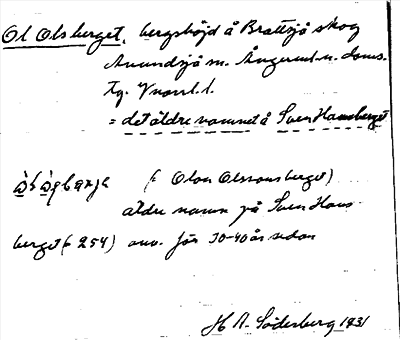 Ol Olsberget, bergshöjd å Brattsjö skog
Anundsjö sn. Ångerml. n. doms.
tg. Vnorrl. l.
= det äldre namnet å Sven Hansberget
(= Olov Olssonsberget)
äldre namn på Sven Hans-
berget (= 254) anv. för 30-40 år sedan
H A. Söderberg 1931